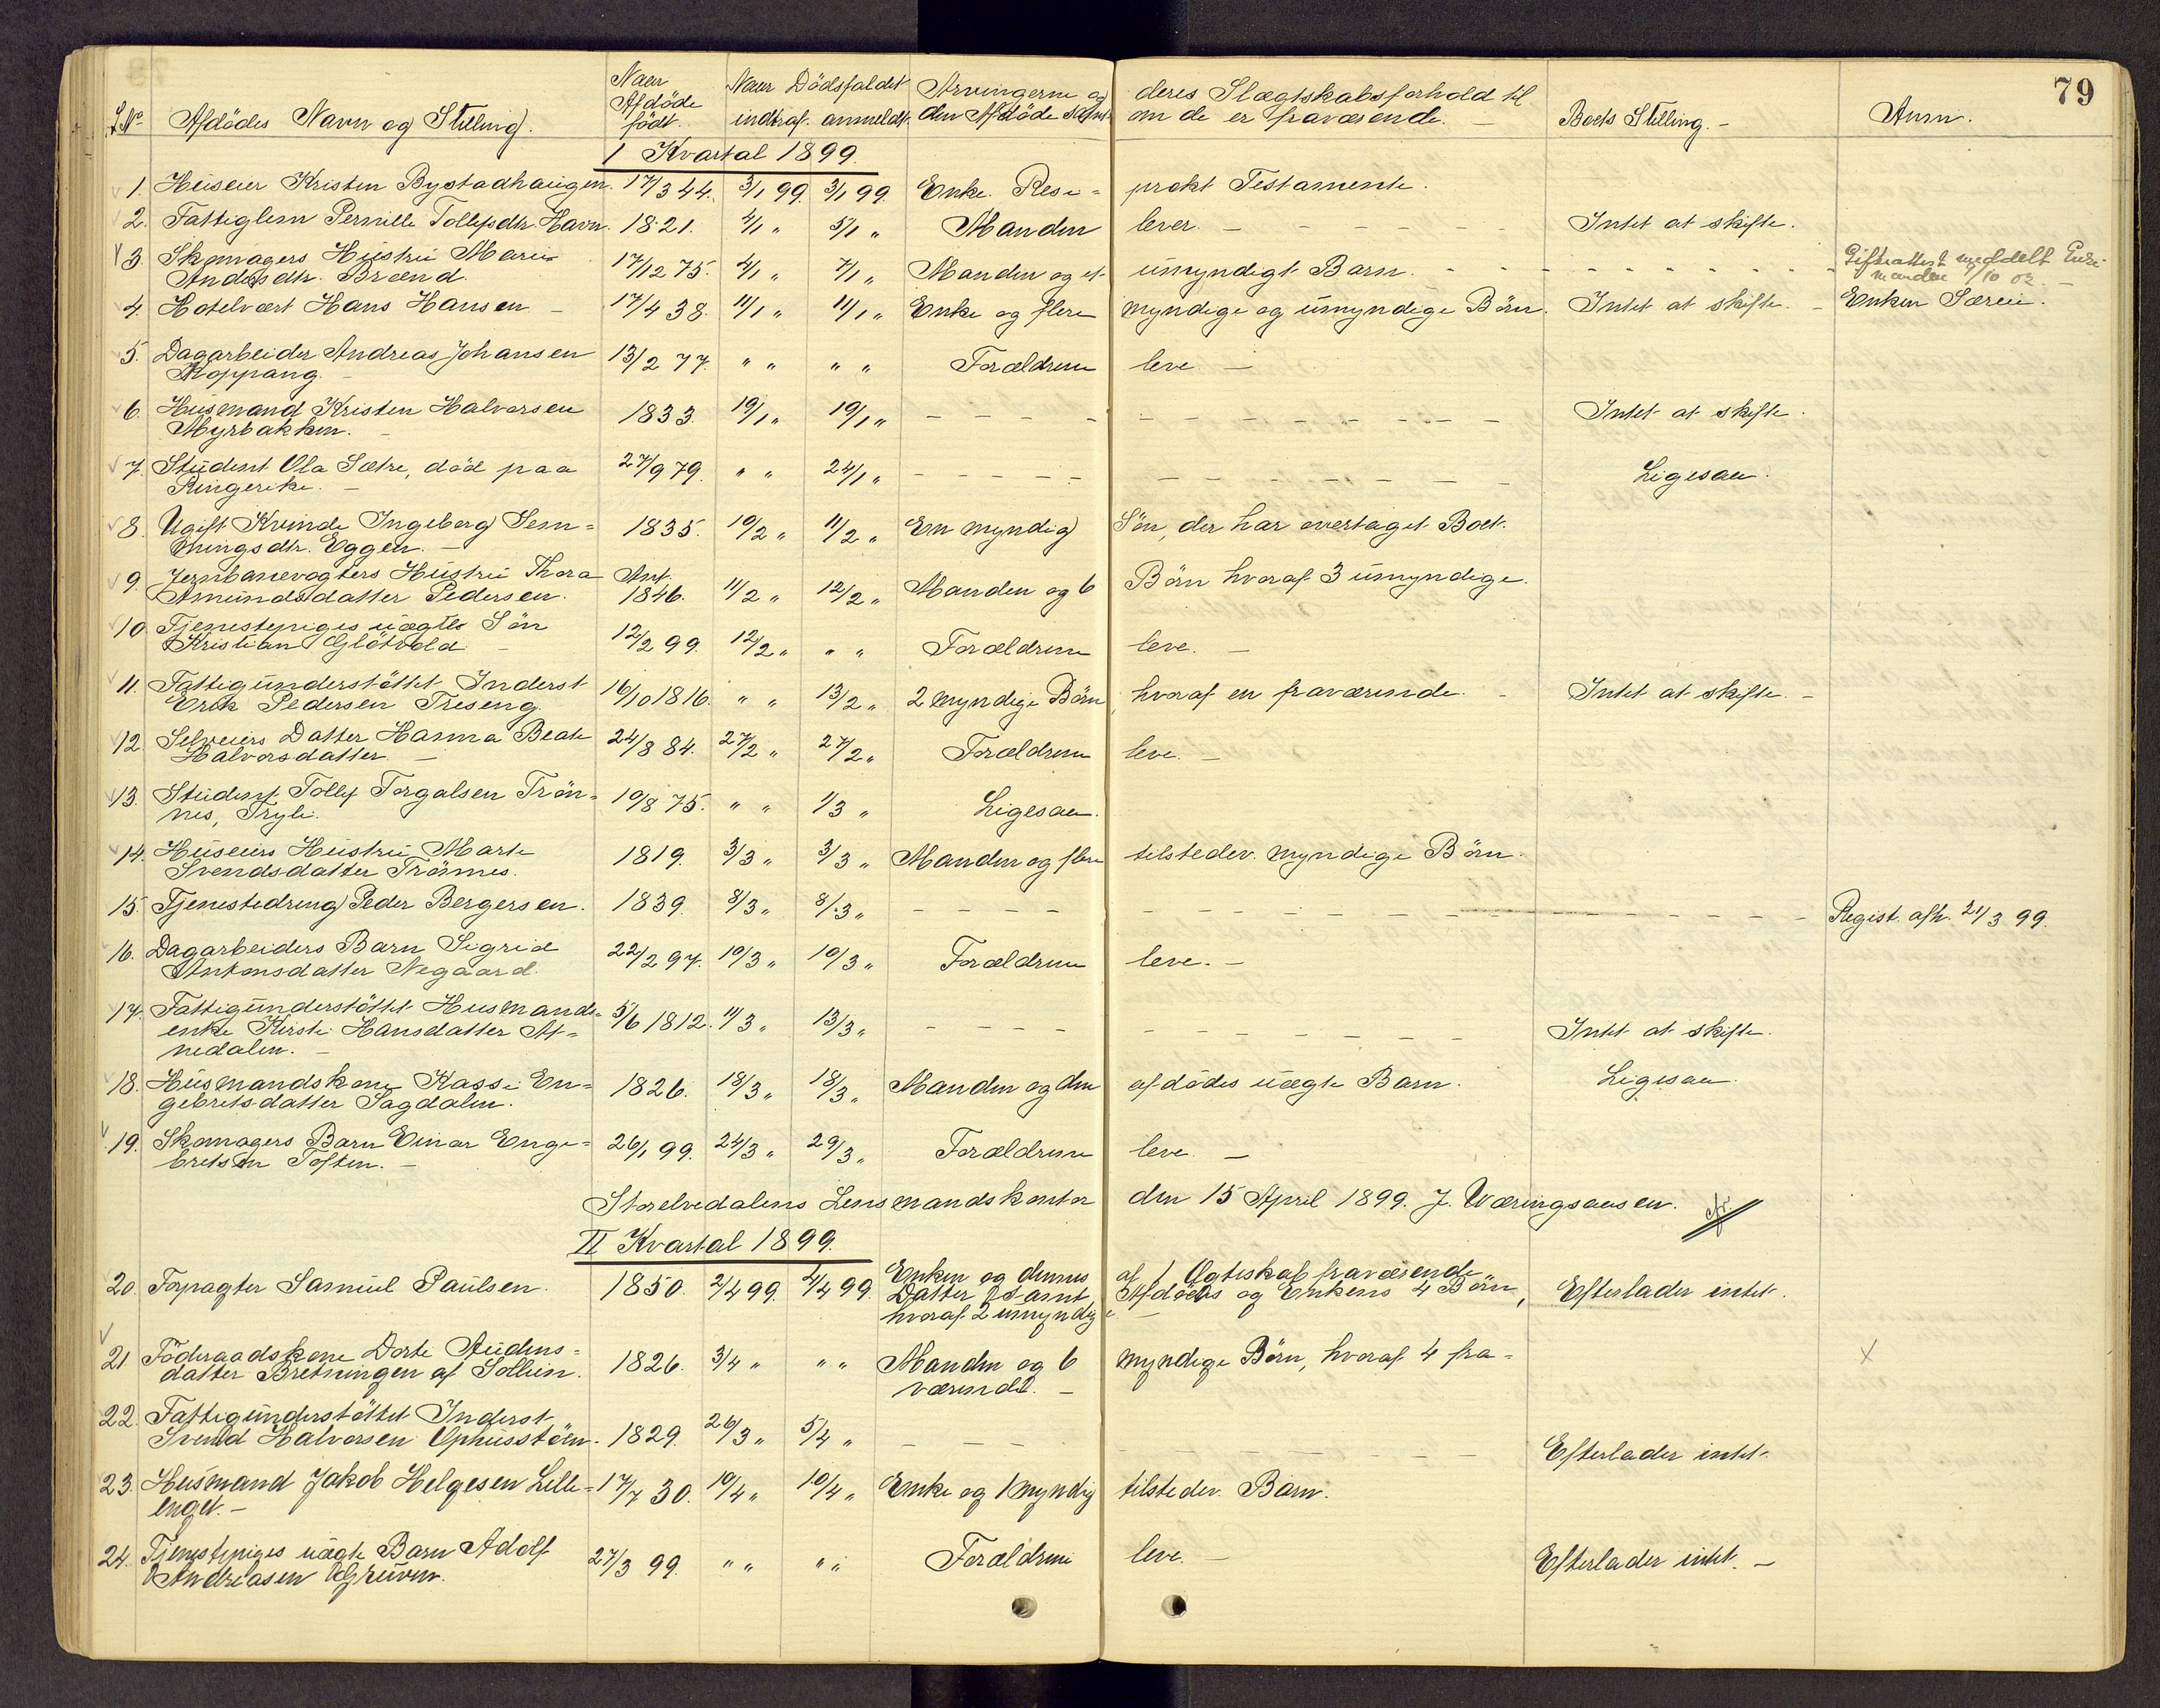 79
L No Afdödes Navn og Stilling. Naar Afdöde födt. Naar Dödsfaldet indtraf. anmeldt. Arvingerne og deres Slægtskabsforhold til den Afdöde samt om de er fraværende. Boets Stilling. - Anm.
I Kvartal 1899.
1. Huseier Kristen Bystadhaugen. 17/3 44. 3/1 99. 3/1 99. Enke. Resi- prokt Testamente.
2. Fattiglem Pernille Tollefsdtr. Havn. 1821. 4/1 " 5/1 " Manden lever. - Intet at skifte.
3. Skomagers Hustru Marie 17/12 75. 4/1 " 7/1 " Manden og et umyndigt Barn. - Giftnattest meddelt Enke-
Andersdtr. Brænd. manden 9/10 02. -
4. Hotelvært Hans Hansen - 17/4 38. 11/1 " 11/1 " Enke og flere myndige og umyndige Börn. Intet at skifte. - Enken Særeie.
5. Dagarbeider Andreas Johansen 13/2 77. " " " " Forældrene leve. -
Koppang. -
6. Husmand Kristen Halvorsen 1833. 19/1 " 19/1 " - - - - Intet at skifte.
Myrbakken. -
7. Student Ola Sætre, död paa 27/9 79. " " 24/1 " - - - - Ligesaa.
Ringerike. -
8. Ugift Kvinde Ingeborg Sem- 1835. 10/2 " 11/2 " En myndig Sön, der har overtaget Boet.
mingsdtr. Eggen. -
9. Jernbanevogters Hustru Thora Ant. 1846. 11/2 " 12/2 " Manden og 6 Börn hvoraf 3 umyndige.
Amundsdatter Pedersen.
10. Tjenestepiges uægte Sön 12/2 99. 12/2 " " " Forældrene leve. -
Kristian Glötvold. -
11. Fattigunderstöttet Inderst 16/10 1816. " " 13/2 " 2 myndige Börn, hvoraf en fraværende. - Intet at skifte. -
Erik Pedersen Treseng.
12. Selveiers Datter Hanna Beate 24/8 84. 27/2 " 27/2 " Forældrene leve. -
Halvorsdatter. -
13. Student Tollef Torgalsen Trön- 19/8 75. " " 1/3 " Ligesaa.
nes, Tryli.
14. Huseiers Hustru Marte 1819. 3/3 " 3/3 " Manden og flere tilstedev. myndige Börn.
Svendsdatter Trönnes.
15. Tjenestedreng Peder Bergersen. 1839. 8/3 " 8/3 " - - - - Regist. afh. 21/3 99.
16. Dagarbeiders Barn Sigrid 22/2 97. 10/3 " 10/3 " Forældrene leve. -
Antonsdatter Negaard.
17. Fattigunderstöttet Husmands- 5/6 1812. 11/3 " 13/3 " - - - - Intet at skifte.
enke Kirsti Hansdatter At-
nedalen. -
18. Husmandskone Kassi En- 1826. 18/3 " 18/3 " Manden og den afdödes uægte Barn. Ligesaa.
gebretsdatter Sagdalen.
19. Skomagers Barn Einar Enge- 26/1 99. 24/3 " 29/3 " Forældrene leve. -
bretsen Toften. -
Storelvedalens Lensmandskontor den 15 April 1899. J. Wæringsaasen.
II Kvartal 1899.
20. Forpagter Samuel Paulsen. 1850. 2/4 99. 4/4 99. Enken og dennes af 1 Ægteskab fraværende
Datter samt Afdödes og Enkens 4 Börn, Efterlader intet.
hvoraf 2 umyndige. -
21. Föderaadskone Dorte Audens- 1826. 3/4 " " " Manden og 6 myndige Börn, hvoraf 4 fra- x
datter Bretningen af Sollien. værende. -
22. Fattigunderstöttet Inderst
Svend Halvorsen Ophusstöen. 1829. 26/3 " 5/4 " - - - Efterlader intet.
23. Husmand Jakob Helgesen Lille- 17/7 30. 10/4 " 10/4 " Enke og 1 myndig tilstedev. Barn.
enget. -
24. Tjenestepiges uægte Barn Adolf 27/3 99. " " " " Forældrene leve. - Efterlader intet. -
Andreasen Gruven.